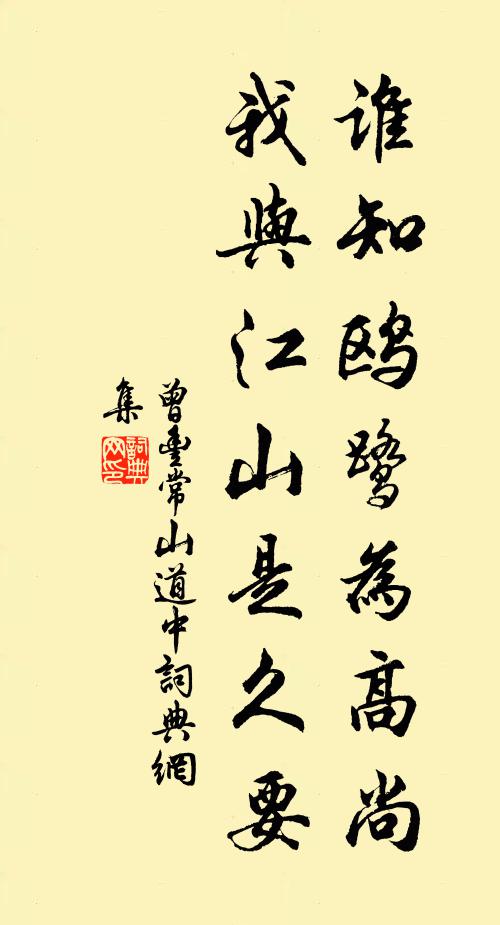 誰知鷗鷺為高尚
我與江山是久要
曾豐常山道中詞典網
集
詞典網印